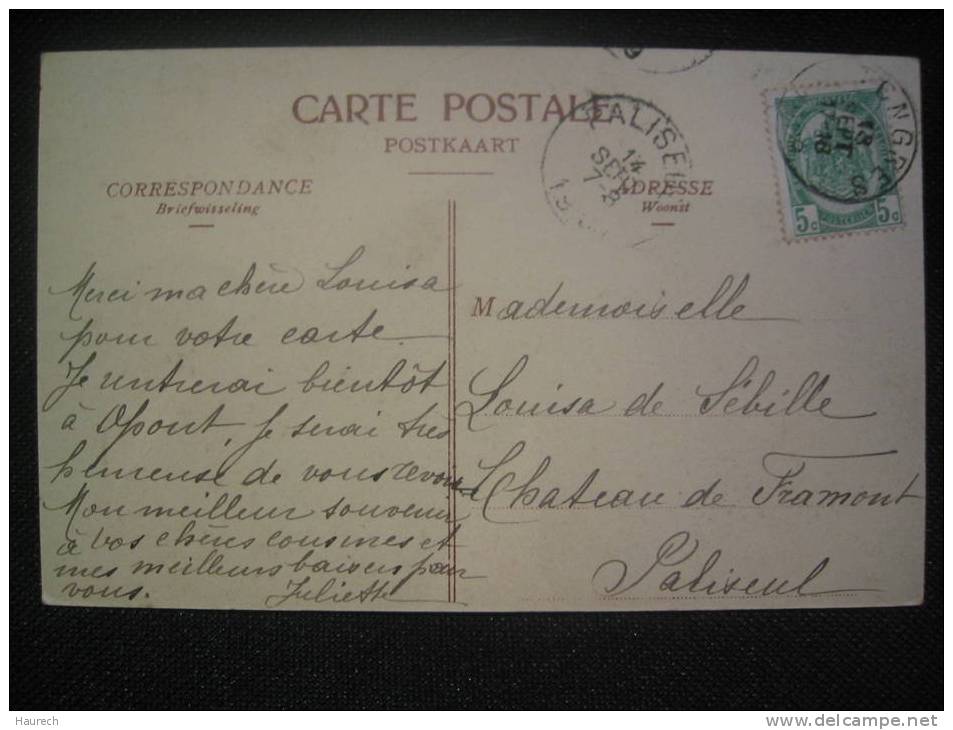 CARTE POSTALE
POSTKAART
CORRESPONDANCE
Briefwisseling
ADRESSE
Woonst
PALISEUL
14
SEPT
7-8
ENGREUX
13
SEPT
18
5c 5c
Merci ma chère Louisa
pour votre carte.
Je rentrerai bientôt
à Opont, je serai très
heureuse de vous revoir.
Mon meilleur souvenir
à vos chères cousines et
mes meilleurs baisers pour
vous. Juliette
Mademoiselle
Louisa de Sébille
Chateau de Framont
Paliseul
Haurech
delcampe.net